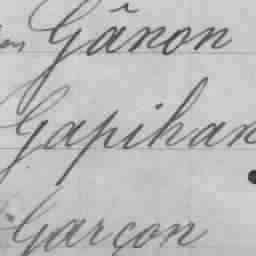 Gânon
Gapihan
Garçon